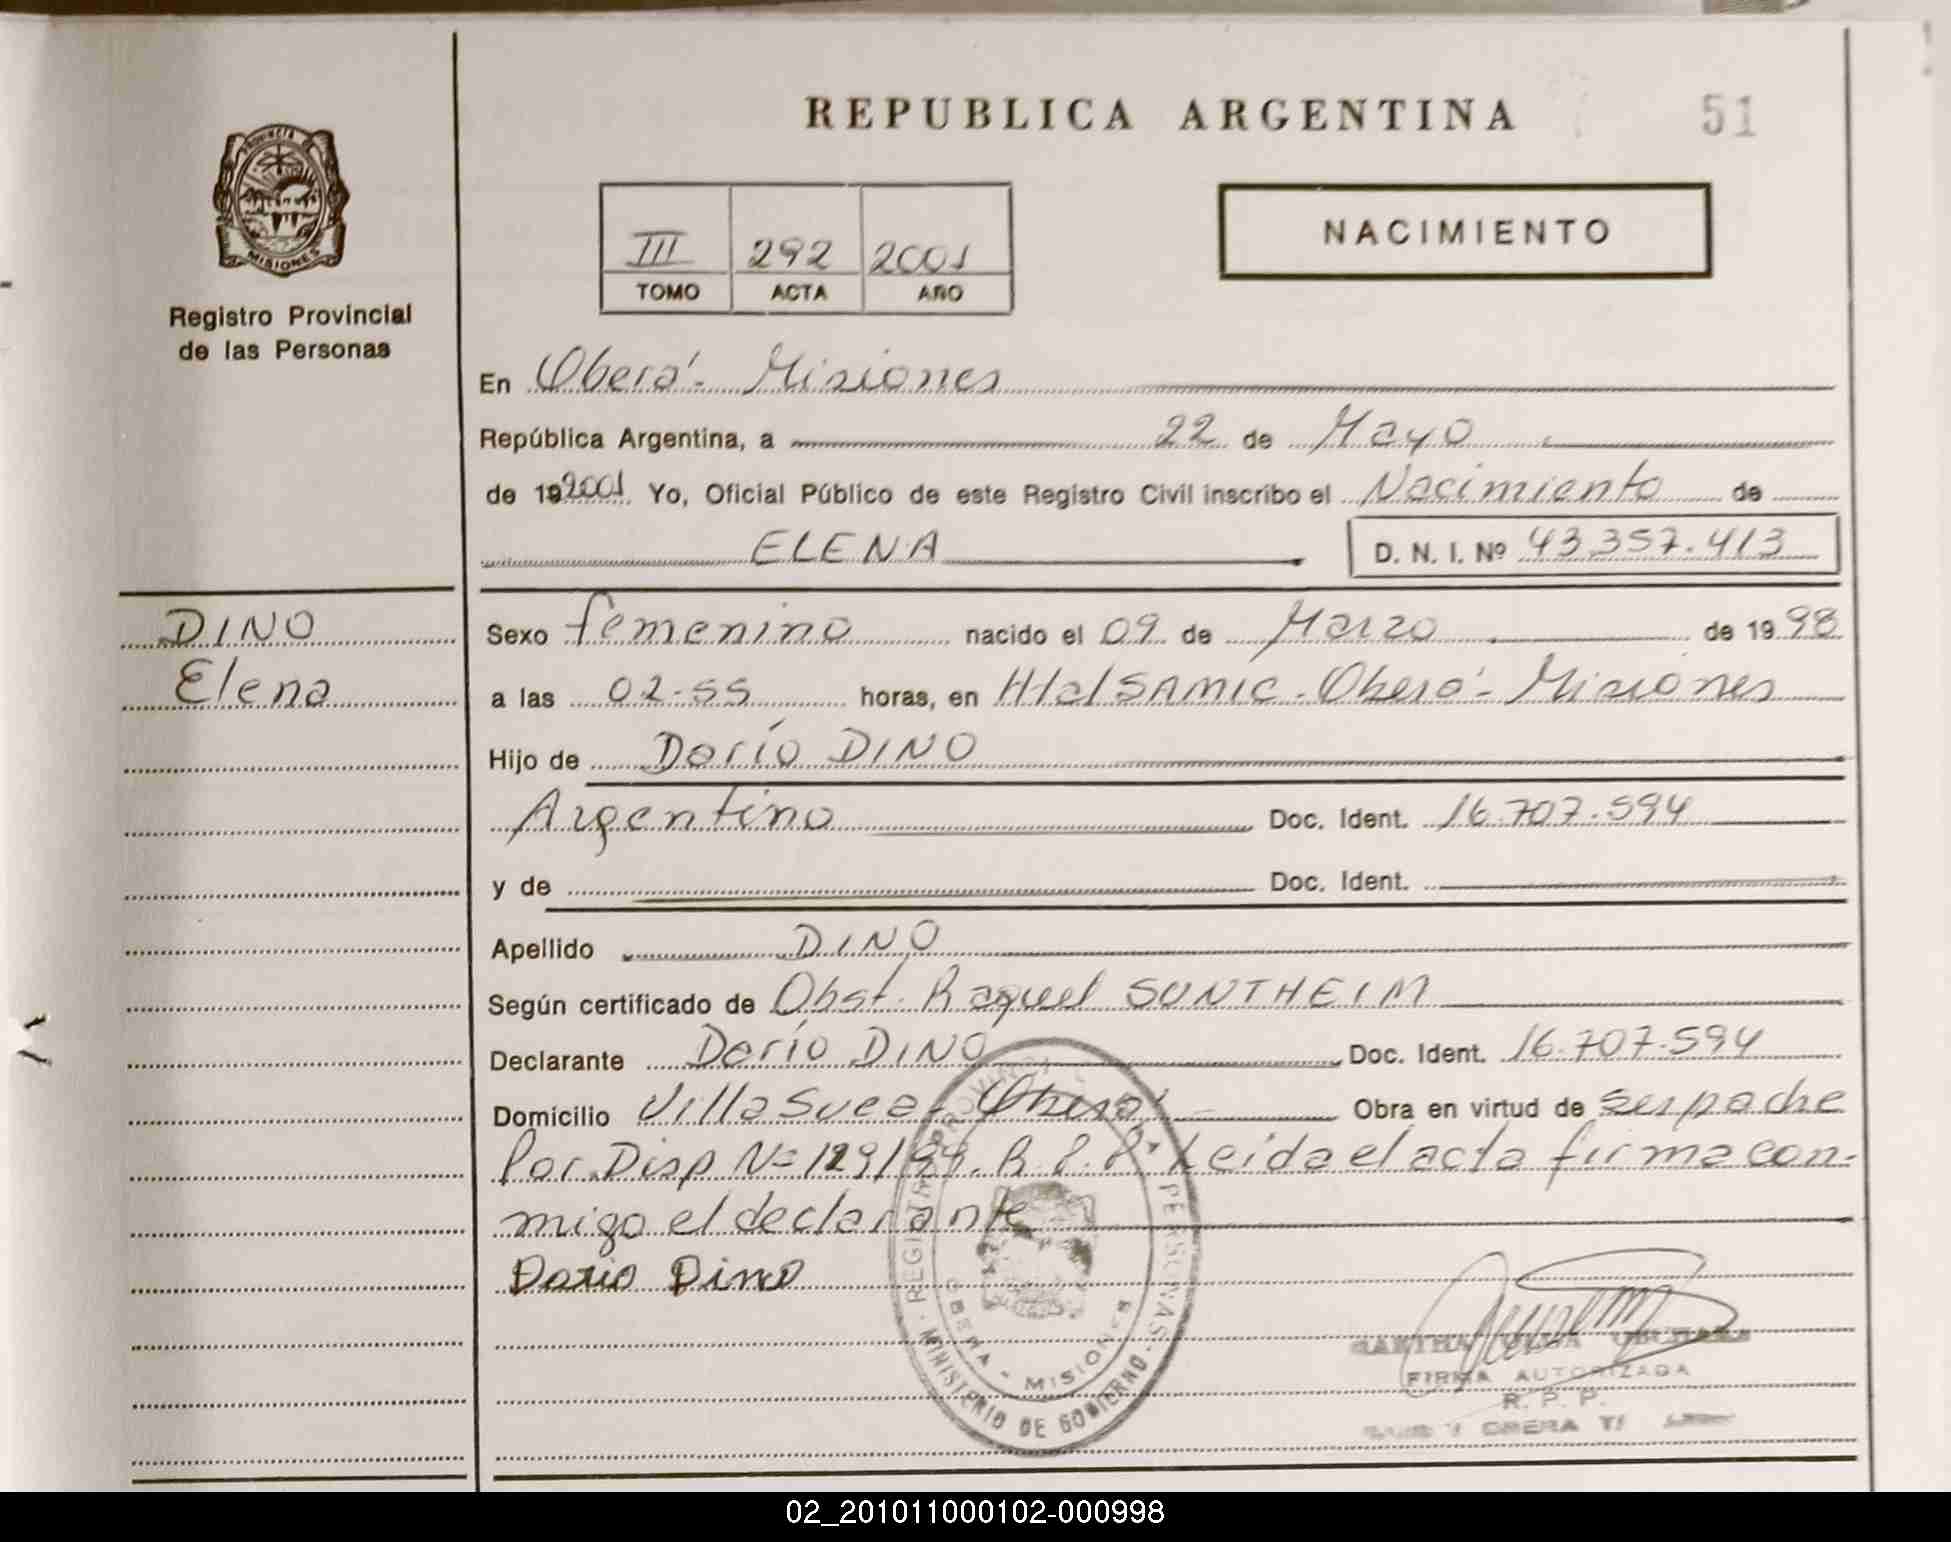 REPUBLICA ARGENTINA
51
PROVINCIA
MISIONES
Registro Provincial
de las Personas
III 292 2001
TOMO ACTA AÑO
NACIMIENTO
En Oberá - Misiones
República Argentina, a 22 de Mayo
de 19 2001 Yo, Oficial Público de este Registro Civil inscribo el Nacimiento de
ELENA D. N. I. Nº 43.357.413
DINO
Elena
Sexo femenino nacido el 09 de Marzo de 19 98
a las 02-55 horas, en SAMIC - Oberá - Misiones
Hijo de Darío DINO
Argentino Doc. Ident. 16.707.594
y de Doc. Ident.
Apellido DINO
Según certificado de Obst. Raquel SUNTHEIM
Declarante Darío DINO Doc. Ident. 16.707.594
Domicilio Villa Svea - Oberá Obra en virtud de ser padre
Por Disp Nº 129/98. R. P. P. Leída el acta firma con-
migo el declarante
Dario Dino
REGISTRO PROVINCIAL PERSONAS
MINISTERIO DE GOBIERNO
OBERA - MISIONES
FIRMA AUTORIZADA
R. P. P.
OBERA
02_201011000102-000998